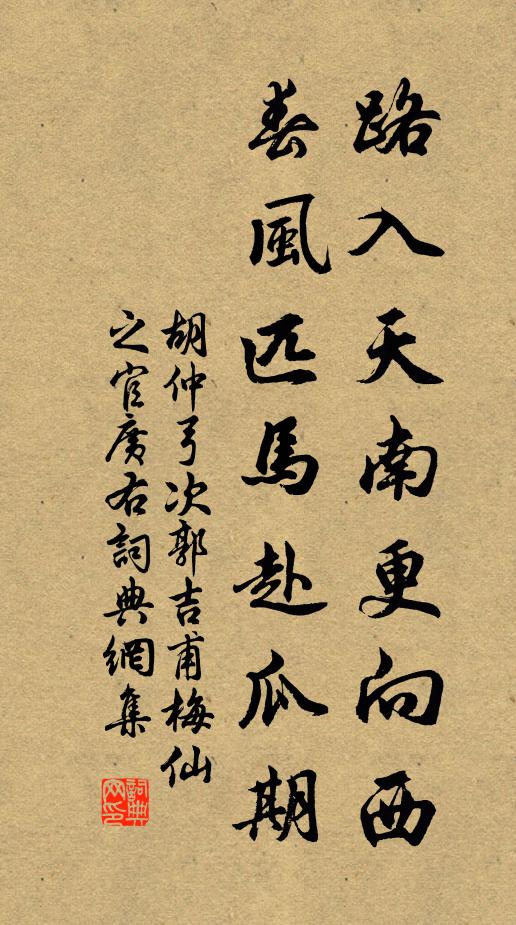 路入天南更向西
春風匹馬赴瓜期
胡仲弓次郭吉甫梅仙
之官廣右詞典網集
詞典网印